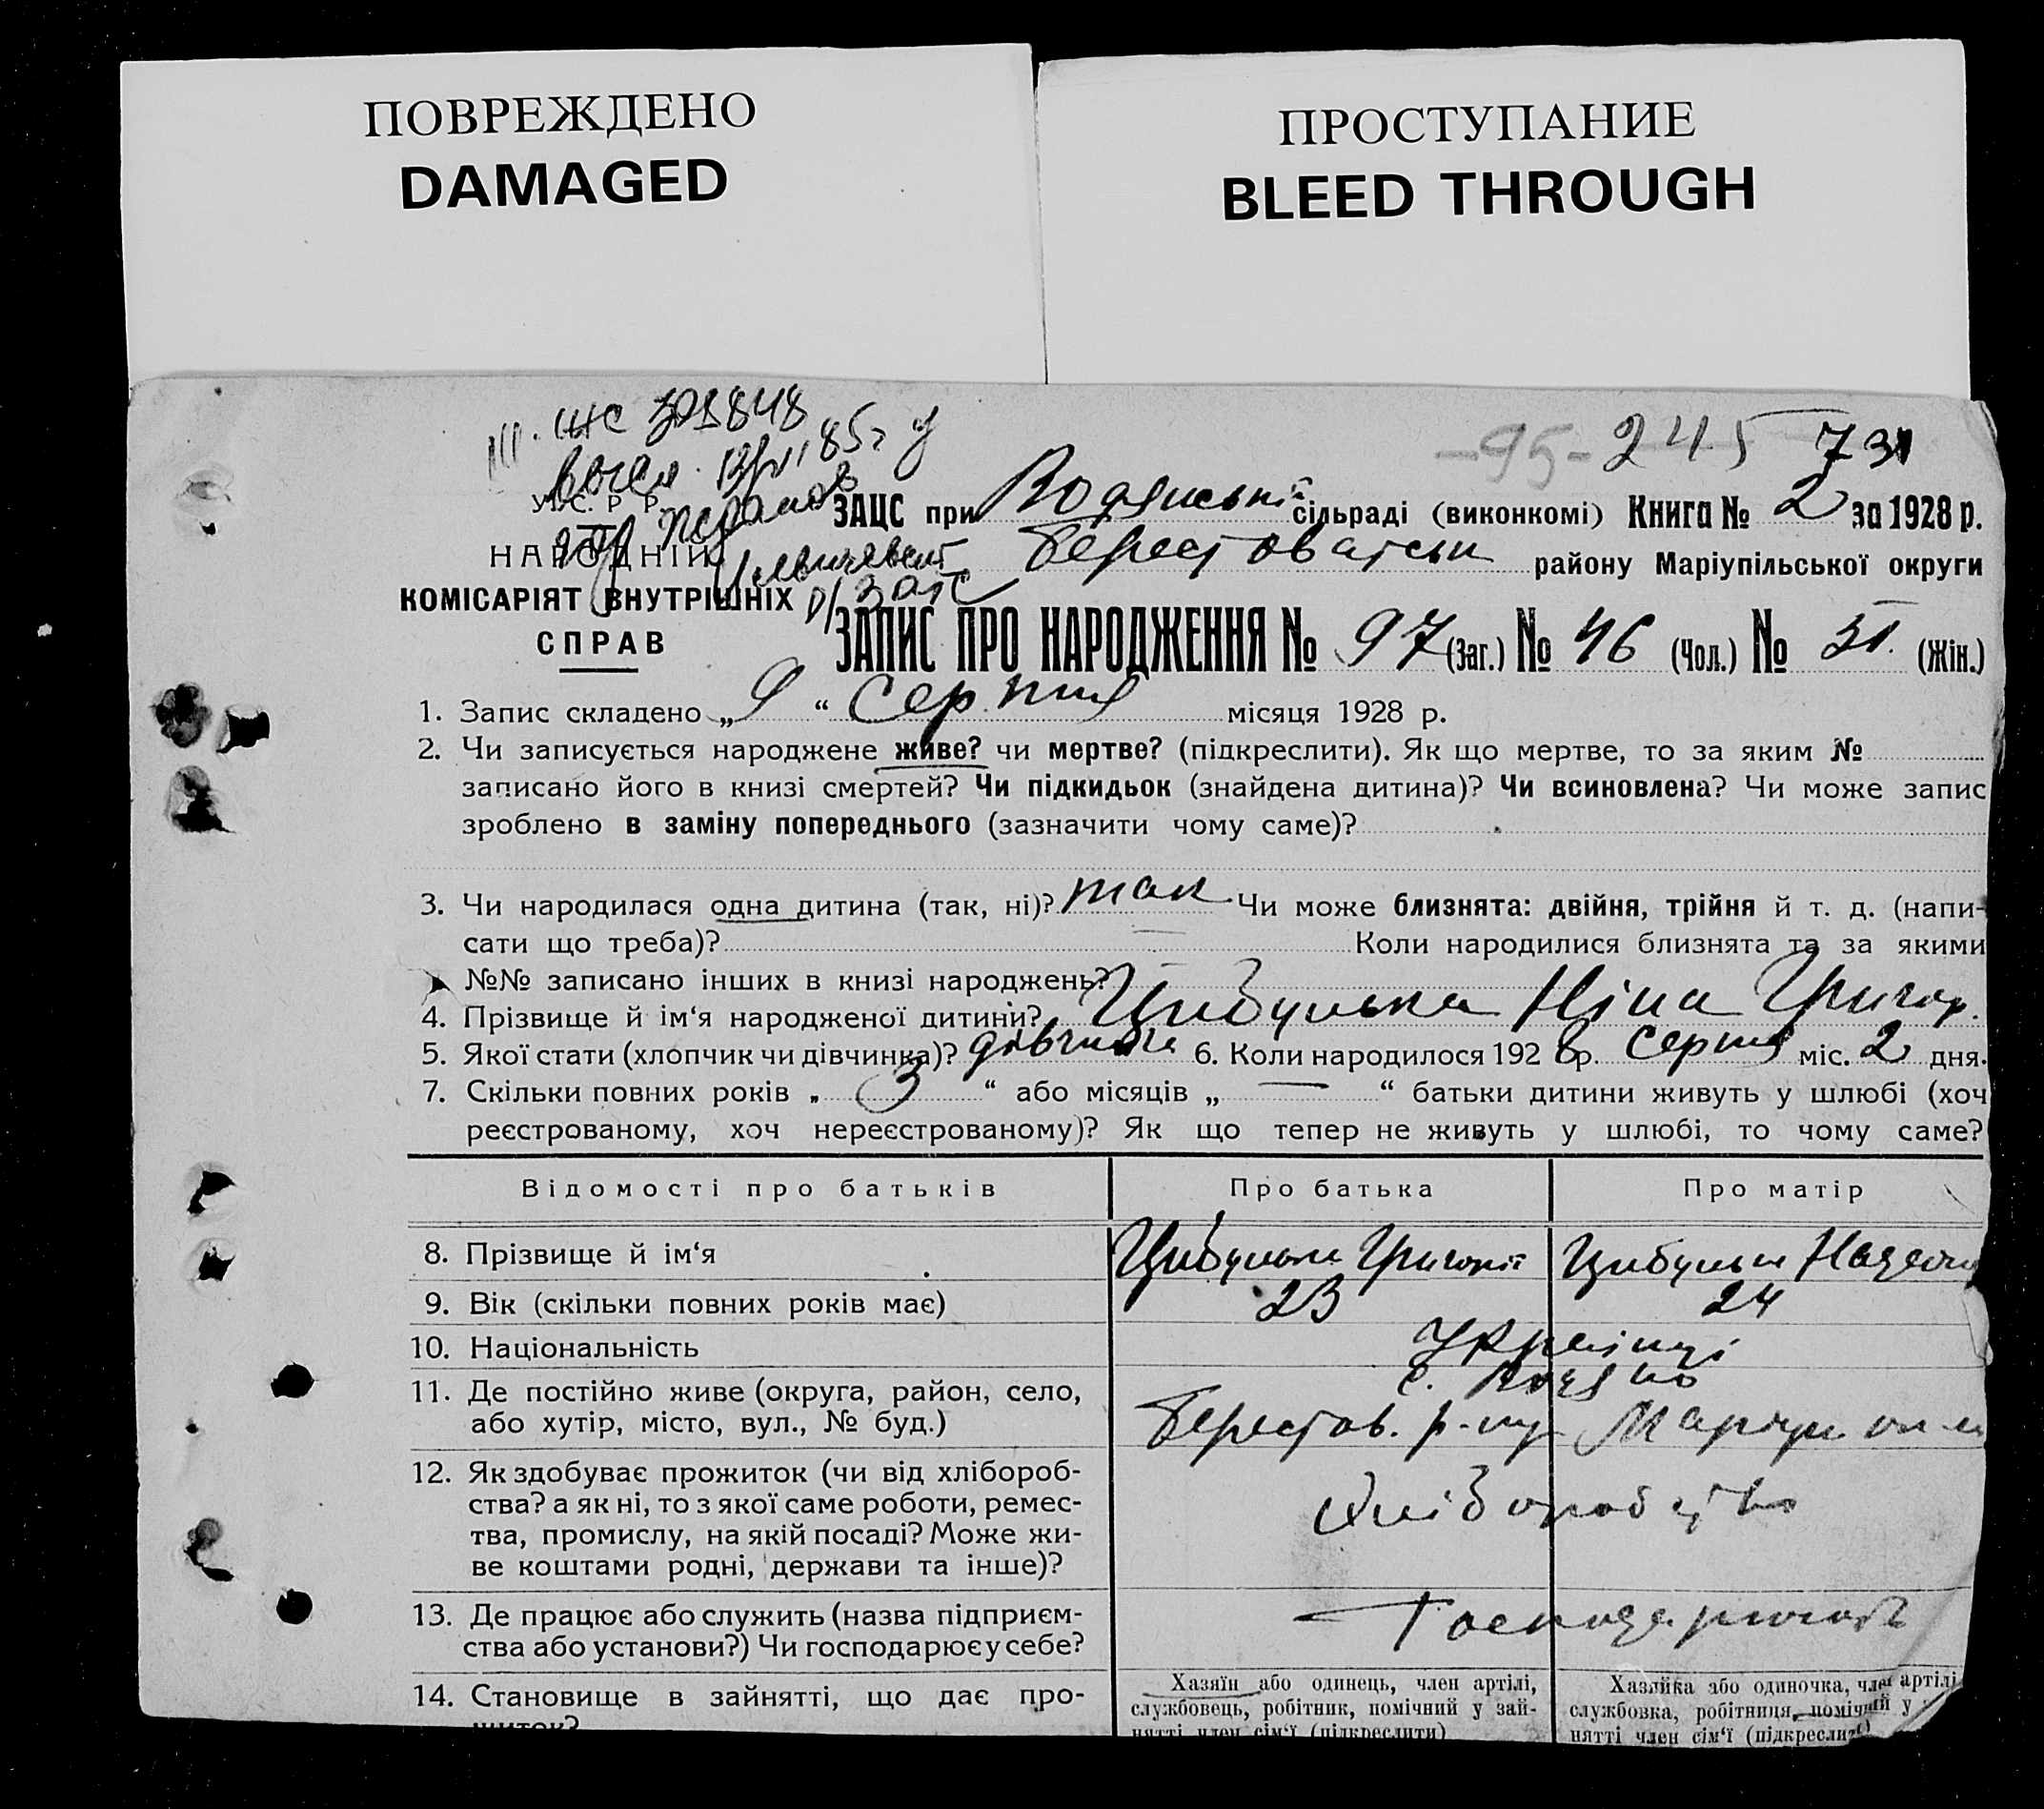 ПОВРЕЖДЕНО
DAMAGED
ПРОСТУПАНИЕ
BLEED THROUGH
-95- 245 731
У. С. Р. Р.
НАРОДНІЙ
КОМІСАРІЯТ ВНУТРІШНІХ
СПРАВ
ЗАЦС при сільраді (виконкомі) Книга № 2 за 1928 р.
району Маріупільської округи
ЗАПИС ПРО НАРОДЖЕННЯ № 97 (Заг.) № 46 (Чол.) № 51. (Жін.)
1. Запис складено „9“ серпня місяця 1928 р.
2. Чи записується народжене живе? чи мертве? (підкреслити). Як що мертве, то за яким №
записано його в книзі смертей? Чи підкидьок (знайдена дитина)? Чи всиновлена? Чи може запис
зроблено в заміну попереднього (зазначити чому саме)?
3. Чи народилася одна дитина (так, ні)? так Чи може близнята: двійня, трійня й т. д. (напи-
сати що треба)? — Коли народилися близнята та за якими
№№ записано інших в книзі народжень?
4. Прізвище й ім‘я народженої дитини? Цибулька Ніна Григор.
5. Якої стати (хлопчик чи дівчинка)? дівчина 6. Коли народилося 1928 р. серпня міс. 2 дня.
7. Скільки повних років „3“ або місяців „—“ батьки дитини живуть у шлюбі (хоч
реєстрованому, хоч нереєстрованому)? Як що тепер не живуть у шлюбі, то чому саме?
Відомості про батьків Про батька Про матір
8. Прізвище й ім‘я Цибулька Григорій Цибульки
9. Вік (скільки повних років має) 23 24
10. Національність Українці
11. Де постійно живе (округа, район, село,
або хутір, місто, вул., № буд.)
Берестов. р-ну
12. Як здобуває прожиток (чи від хлібороб-
ства? а як ні, то з якої саме роботи, ремес-
тва, промислу, на якій посаді? Може жи-
ве коштами родні, держави та інше)?
Хліборобство
13. Де працює або служить (назва підприєм-
ства або установи?) Чи господарює у себе?
14. Становище в зайнятті, що дає про-
житок?
Хазяїн або одинець, член артілі,
службовець, робітник, помічний у зай-
нятті член сім‘ї (підкреслити)
Хазяйка або одиночка, член артілі
службовка, робітниця, помічний у
нятті член сім‘ї (підкреслити)